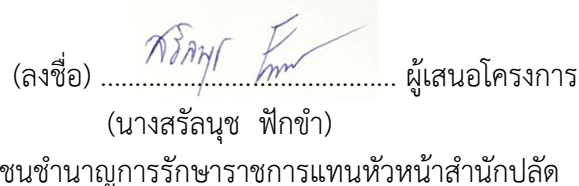 (ลงชื่อ) ............................................ ผู้เสนอโครงการ
(นางสรัลนุช ฟักขำ)
ชนชำนาญการรักษาราชการแทนหัวหน้าสำนักปลัด